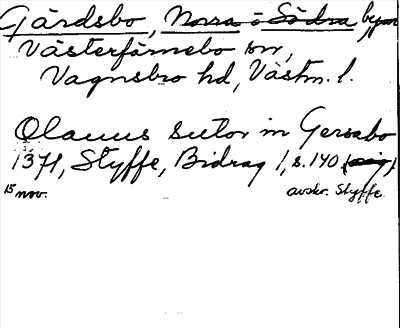 Gärdsbo, Norra o Södra byar
Västerfärnebo sn,
Vagnsbro hd, Västm. l.
Olauus sutor in Gersabo
1371, Styffe, Bidrag 1, s. 140
15 nov.
avskr. Styffe.